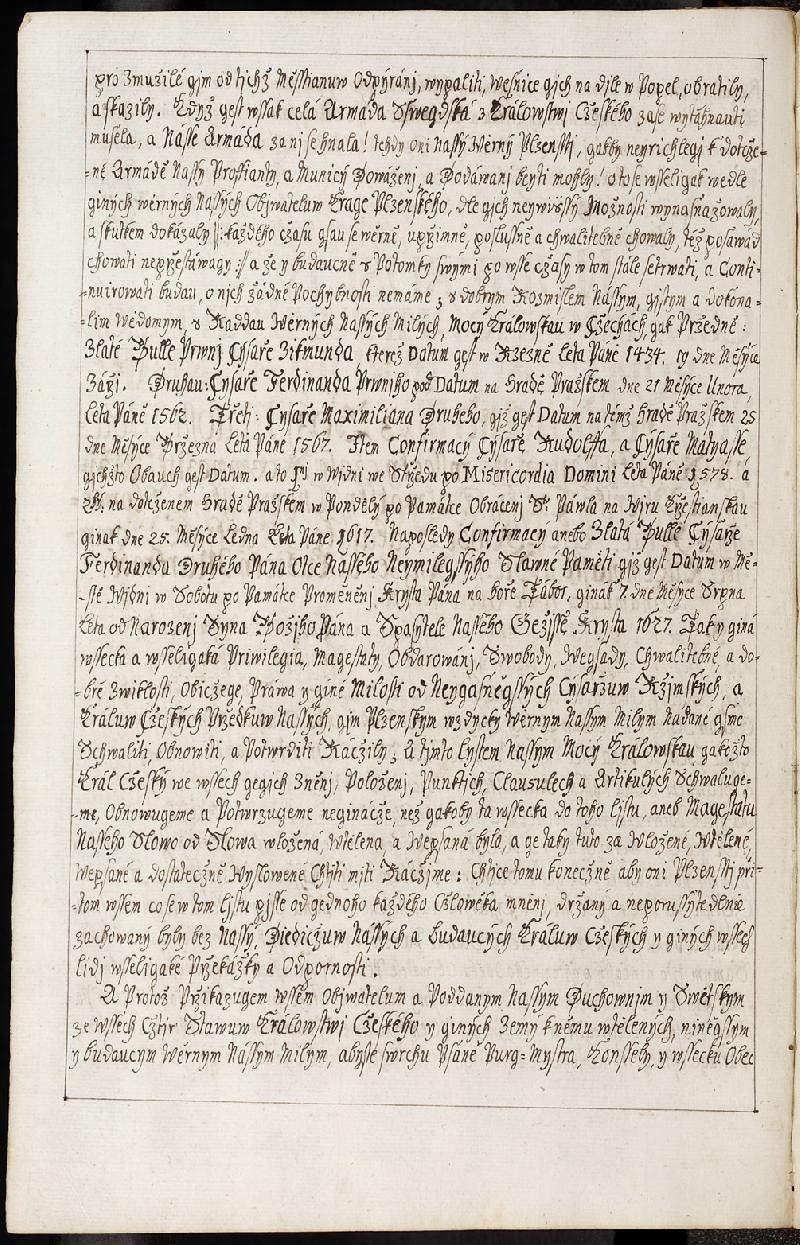 pro Zmužilé gim od tichž Měsstianuw Odpyránj, wypaliti, wesnice gich na djle w Popel, obratily,
a skazily. Když gest wssak celá Armáda Sswegdská z Královstwj Czeského zase wytáhnauti
musela, a Nasse Armáda za nj se hnala! tehdy oni Nassy Wěrný Plzenstj, gakby neyrichlegj k dotcže-
=né Armádě Nassy Proffianty, a Municy Dowáženj, a Dodáwanj beyti mohly! o to se wsseligak wedle
giných wěrných Nassých Obywateluw Krage Plzenského, dle gich neywissy Možnosti wynasnažowaly,
a skutkem dokázaly /: každého czasu gsau se wěrně, upržimně, poslussně a chwalitebně chowaly, též posawád
chowati nepržestáwagy :/ a že y budaucně s Potomky swými po wsse cžasy w tom stále setrwati, a Conti-
=nuirowati budau, o nich žádné Pochybnosti nemáme; s dobrým Rozmislem Nássym, gistym a dokona=
=lim wědomym, s Raddau Wěrných Nassých Milých, Mocý Královskau w Cžechách, gak Prźedně:
Zlaté Bulle Prwnj Cysaře Zikmunda kterež Datum gest w Rzezně Léta Páně 1434. 19 dne Měsýce
Zářj. Druhau: Cysaře Ferdinanda Prwnjho pod Datum na hradě Pražském dne 21 Měsýce Února,
Léta Páně 1562. Třetj: Cysaře Maximiliana Druhého, giž gest Datum na témž hradě Pražském 25
dne Měsýce Bržezna Léta Páně 1567. Item Confirmacý Cysaře Rudolffa, a Cysaře Matyasse,
gichžto Obauch gest Datum. a to 1mj w Widni we Stržedu po Misericordia Domini Léta Páně 1578. a
2hi. na dotčenem hradě Pražském w Pondělý po Památce Obrácenj Sv. Páwla na Wjru Křestianskau
ginak dne 25. Měsýce Ledna Léta Páně 1617. Naposledy Confirmacý anebo Zlatá Bulle Cýsaře
Ferdinanda Druhého Pána Otce Nasseho Neymilegssyho Slawné Paměti giž gest Datum w Mě-
=stě Widni w Sobotu po Památce Proměněnj Krysta Pána na hoře Tábor, ginak 7 dne Měsýce Srpna
Léta od Narozenj Syna Božjho Pána a Spasytele Nasseho Gežisse Krysta 1627. Taky giná
wssecka a wsseligaká Priwilegia, Magestaty, Obdarowánj, Swobody, Weysady, Chwalitebné, a do-
=bré Zwiklosti, Obicžege, Práwa y giné Milosti od Neygasněgssých Cýsaržuw Ržjmských, a
Králuw Cžeských Předkuw Nassých, gim Plzenským wzdycky Wěrnym Nassym Milým Nádané gsme
Schwaliti, Obnowiti, a Potwrditi Ráczily; A tjmto Lystem Nassym Mocý Královskau gakožto
Král Cžeský we wssech gegich Zněnj, Položenj, Punktjch, Clausulech a Artikulých Schwaluge-
=me, Obnowugeme a Potwrzugeme neginácže, než gakoby ta wssecka do toho Listu, aneb Magestátu
Nasseho Slowo od Slowa wložená, Wtělena, a Wepsaná byla, a ge taky tuto za Wložené, Wtělené,
Wepsané a dostatecžně Wyslowené Chtjti mjti Rácžjme: Chtice tomu konecžně aby oni Plzenstj při-
=tom wssem co se w tom Listu pjsse od gednoho každého Cžlowěka mněnj, držaný a neporussytedlně
zachowaný byly bez Nassý, Diedicžuw Nassých a budaucých Králuw Cžeských y giných wssech
lidj wsseligaké Přzekážky a Odpornosti.
A Protož Přikazugem wssem Objwatelum a Poddanym Nassym Duchownjm y Swětským
ze wssech Cžtyr Stawuw Královstwj Cžeského y giných Zemý k němu wtělených, niněgssym
y budaucym Wěrnym Nássym Milým, abysté swrchu Psané Purg=Mystra, Konssely, y wssecku Obec